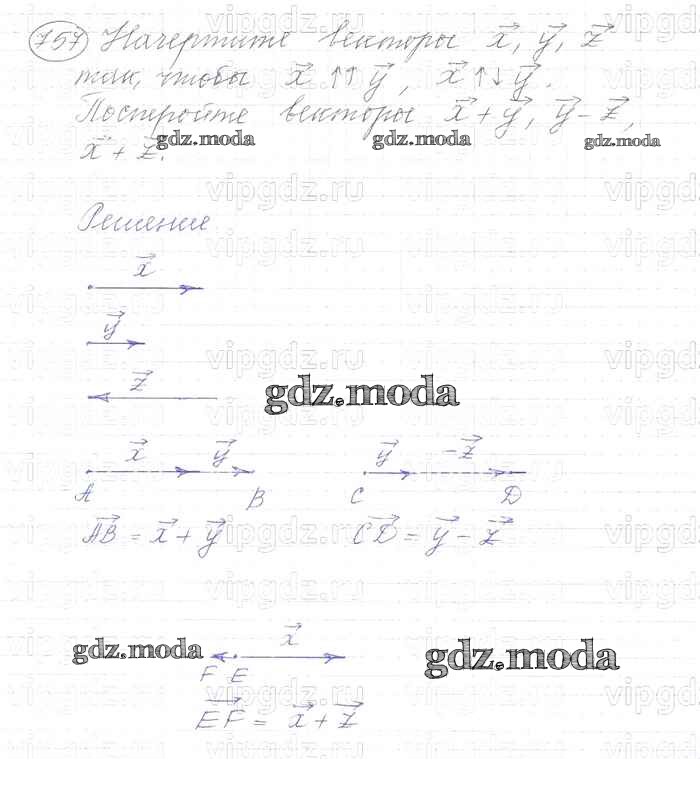 757 Начертите векторы x⃗, y⃗, z⃗
так, чтобы x⃗ ↑↑ y⃗, x⃗ ↑↓ y⃗.
Постройте векторы x⃗ + y⃗, y⃗ - z⃗,
x⃗ + z⃗.
gdz.moda gdz.moda gdz.moda
Решение
x⃗
y⃗
z⃗
gdz.moda
x⃗ y⃗ y⃗ -z⃗
A B C D
AB⃗ = x⃗ + y⃗ CD⃗ = y⃗ - z⃗
x⃗
gdz.moda gdz.moda
F E
EF⃗ = x⃗ + z⃗
vipgdz.ru